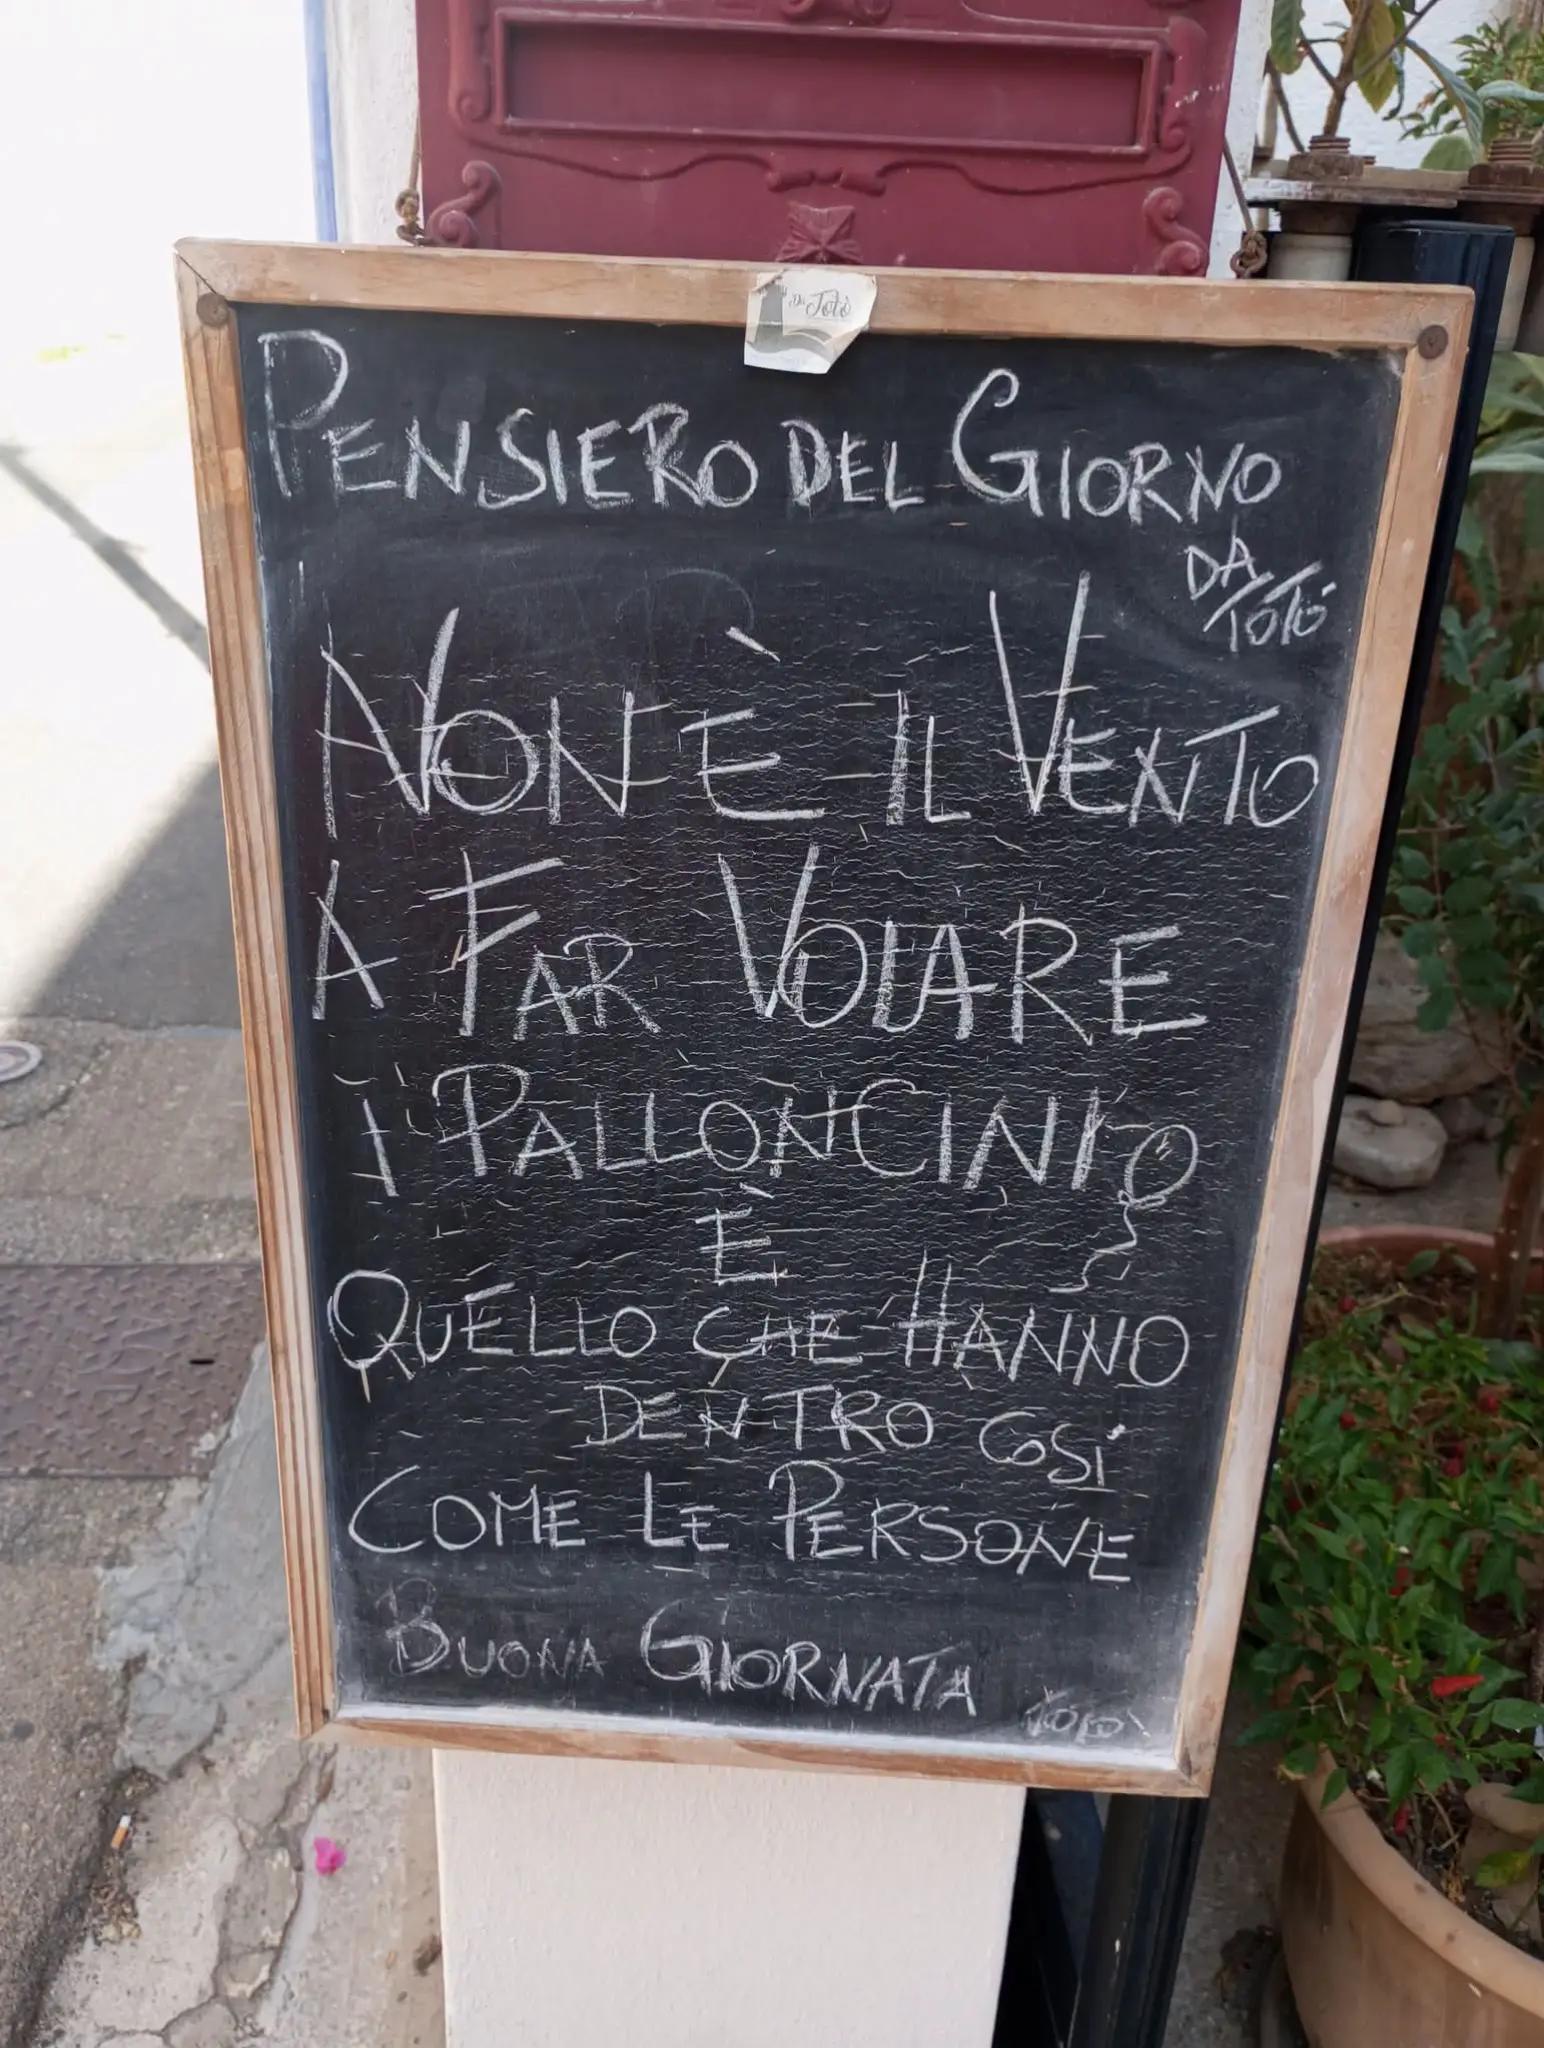 Da Totò
PENSIERO DEL GIORNO
DA
TOTÒ
NON È IL VENTO
A FAR VOLARE
I PALLONCINI
È
QUELLO CHE HANNO
DENTRO COSÌ
COME LE PERSONE
BUONA GIORNATA
TOTÒ